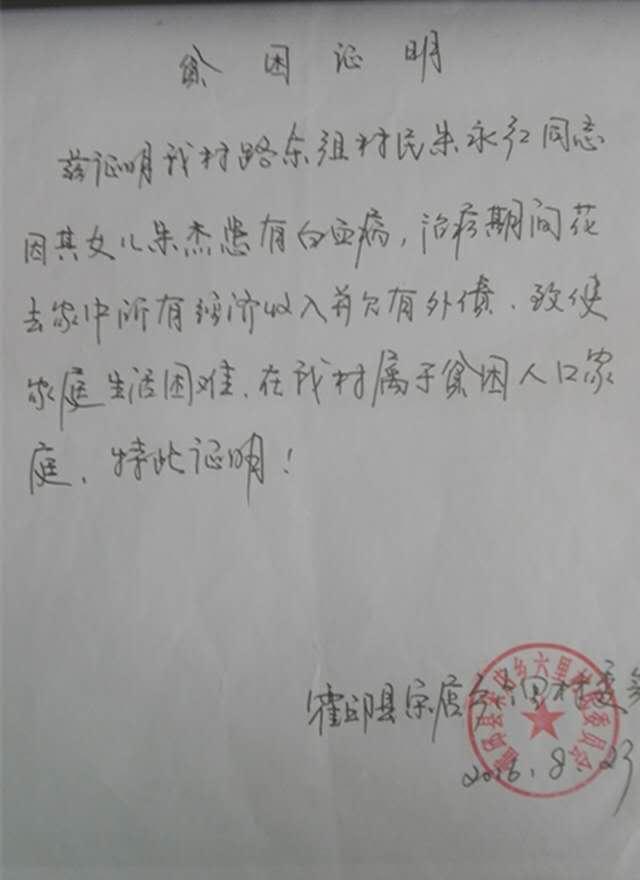 贫困证明
兹证明我村路东组村民朱永红同志
因其女儿朱杰患有白血病,治疗期间花
去家中所有经济收入并欠有外债、致使
家庭生活困难、在我村属于贫困人口家
庭、特此证明!
霍邱县宋店乡六里村委
2016.8.23